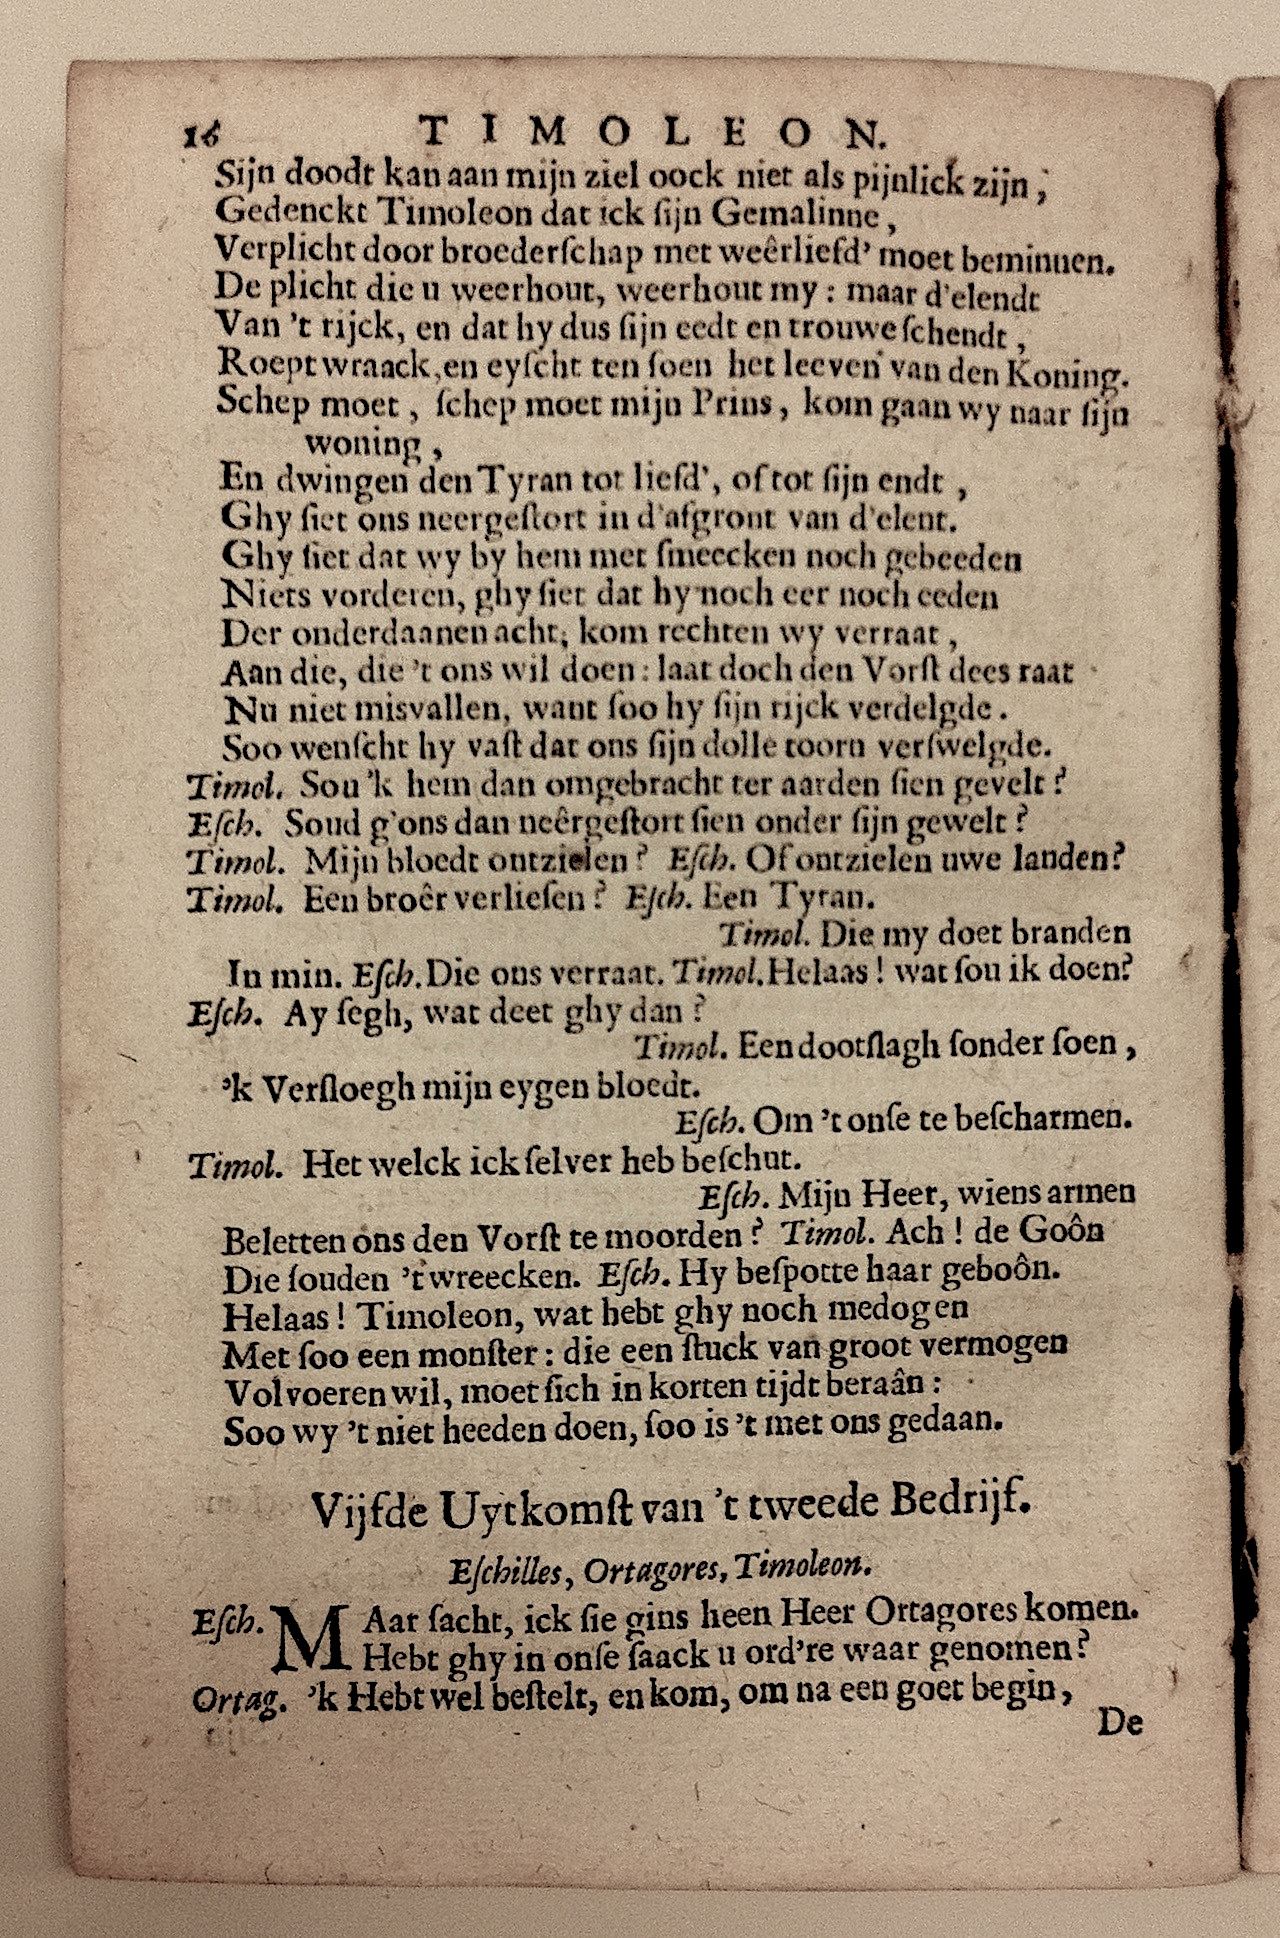 16 TIMOLEON.
Sijn doodt kan aan mijn ziel oock niet als pijnlick zijn,
Gedenckt Timoleon dat ick ſijn Gemalinne,
Verplicht door broederſchap met weêrliefd' moet beminnen.
De plicht die u weerhout, weerhout my: maar d'elendt
Van 't rijck, en dat hy dus ſijn eedt en trouwe ſchendt,
Roept wraack, en eyſcht ten ſoen het leeven van den Koning.
Schep moet, ſchep moet mijn Prins, kom gaan wy naar ſijn
woning,
En dwingen den Tyran tot liefd', of tot ſijn endt,
Ghy ſiet ons neergeſtort in d'afgront van d'elent.
Ghy ſiet dat wy by hem met ſmeecken noch gebeeden
Niets vorderen, ghy ſiet dat hy noch eer noch eeden
Der onderdaanen acht; kom rechten wy verraat,
Aan die, die 't ons wil doen: laat doch den Vorſt dees raat
Nu niet misvallen, want ſoo hy ſijn rijck verdelgde.
Soo wenſcht hy vaſt dat ons ſijn dolle toorn verſwelgde.
Timol. Sou 'k hem dan omgebracht ter aarden ſien gevelt?
Eſch. Soud g'ons dan neêrgeſtort ſien onder ſijn gewelt?
Timol. Mijn bloedt ontzielen? Eſch. Of ontzielen uwe landen?
Timol. Een broêr verlieſen? Eſch. Een Tyran.
Timol. Die my doet branden
In min. Eſch. Die ons verraat. Timol. Helaas! wat ſou ik doen?
Eſch. Ay ſegh, wat deet ghy dan?
Timol. Een dootſlagh ſonder ſoen,
'k Verſloegh mijn eygen bloedt.
Eſch. Om 't onſe te beſcharmen.
Timol. Het welck ick ſelver heb beſchut.
Eſch. Mijn Heer, wiens armen
Beletten ons den Vorſt te moorden? Timol. Ach! de Goôn
Die ſouden 't wreecken. Eſch. Hy beſpotte haar geboôn.
Helaas! Timoleon, wat hebt ghy noch medogen
Met ſoo een monſter: die een ſtuck van groot vermogen
Volvoeren wil, moet ſich in korten tijdt beraân:
Soo wy 't niet heeden doen, ſoo is 't met ons gedaan.
Vijfde Uytkomſt van 't tweede Bedrijf.
Eſchilles, Ortagores, Timoleon.
Eſch. MAar ſacht, ick ſie gins heen Heer Ortagores komen.
Hebt ghy in onſe ſaack u ord're waar genomen?
Ortag. 'k Hebt wel beſtelt, en kom, om na een goet begin,
De